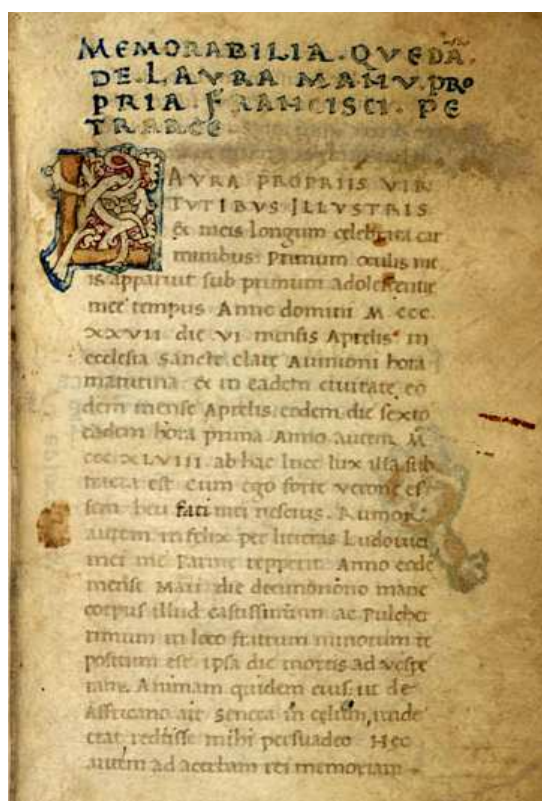 MEMORABILIA. QVEDÃ.
DE LAVRA MANV. PRO
PRIA FRANCISCI. PE
TRARCE
LAVRA PROPRIIS VIR
TVTIBVS ILLVSTRIS
& meis longum celebrata car
minibus: Primum oculis me
is apparuit sub primum adolescentie
mee tempus Anno domini M ccc.
xxvii die vi mensis Aprelis in
ecclesia sancte clare Auinioni hora
matutina. & in eadem ciuitate eo
dem mense Aprelis eodem die sexto
eadem hora prima Anno autem M̃
ccc xLviii ab hac luce lux illa sub
tracta est cum ego forte verone es
sem heu fati mei nescius. Rumor
autem infelix per litteras Ludouici
mei me Parme repperit Anno eodẽ
mense Maii die decimonono mane
corpus illud castissimum ac Pulcher
rimum in loco fratrum minorum re
positum est ipsa die mortis ad vespe
ram. Animam quidem eius. ut de
Affricano ait Seneca in celum, unde
erat, redisse mihi persuadeo Hec
autem ad acerbam rei memoriam